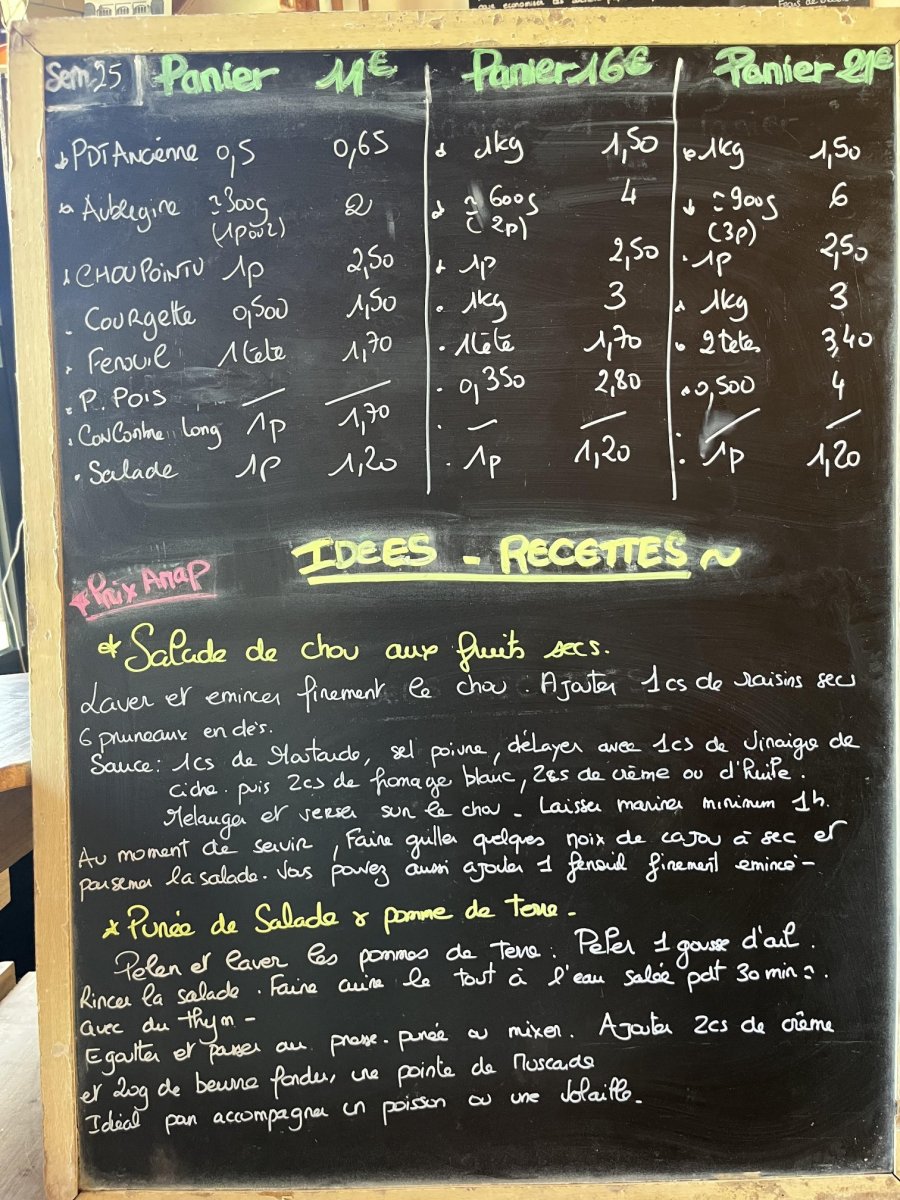 Sem 25 Panier 11€ Panier 16€ Panier 21€
PDT Ancienne 0,5 0,65 1kg 1,50 1kg 1,50
Aubergine ≃300g 2 ≃ 600g 4 ≃900g 6
(1p ou 2) (2p) (3p)
CHOU POINTU 1p 2,50 1p 2,50 1p 2,50
Courgette 0,500 1,50 1kg 3 1kg 3
Fenouil 1 tête 1,70 1 tête 1,70 2 têtes 3,40
P. POIS — — 0,350 2,80 0,500 4
ConCombre long 1p 1,70 — — — —
Salade 1p 1,20 1p 1,20 1p 1,20
IDEES - RECETTES ~
Prix Amap
* Salade de chou aux fruits secs.
Laver et emincer finement le chou. Ajouter 1cs de raisins secs
6 pruneaux en dés.
Sauce: 1cs de Moutarde, sel poivre, délayer avec 1cs de Vinaigre de
cidre. puis 2cs de fromage blanc, 2cs de crème ou d'huile.
Melanger et verser sur le chou - Laisser mariner minimum 1h.
Au moment de servir, Faire griller quelques noix de cajou à sec et
parsemer la salade. Vous pouvez aussi ajouter 1 fenouil finement emincé -
* Purée de Salade & pomme de terre -
Peler et laver les pommes de terre. Peler 1 gousse d'ail.
Rincer la salade. Faire cuire le tout à l'eau salée pdt 30 min
avec du thym -
Egoutter et passer au presse-purée ou mixer. Ajouter 2cs de crème
et 20g de beurre fondu, une pointe de Muscade
Idéal pour accompagner un poisson ou une Volaille -